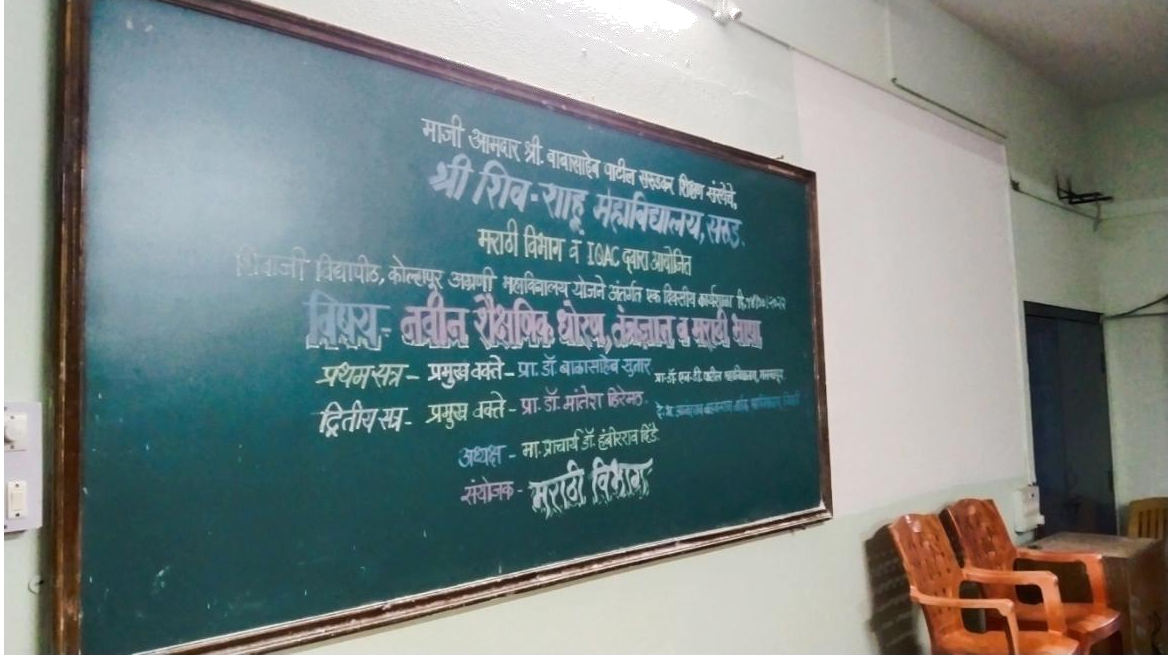 माजी आमदार श्री. बाबासाहेब पाटील सरुडकर शिक्षण संस्थेचे,
श्री शिव-शाहू महाविद्यालय, सरुड.
मराठी विभाग व IQAC द्वारा आयोजित
शिवाजी विद्यापीठ, कोल्हापूर अग्रणी महाविद्यालय योजने अंतर्गत एक दिवसीय कार्यशाळा दि.
विषय- नवीन शैक्षणिक धोरण, तंत्रज्ञान व मराठी भाषा
प्रथम सत्र - प्रमुख वक्ते - प्रा. डॉ. बाळासाहेब सुतार प्रा. डॉ. एन. डी. पाटील महाविद्यालय, मलकापूर
द्वितीय सत्र - प्रमुख वक्ते - प्रा. डॉ. मांतेश हिरेमठ
अध्यक्ष - मा. प्राचार्य डॉ. हंबीरराव दिंडे
संयोजक - मराठी विभाग